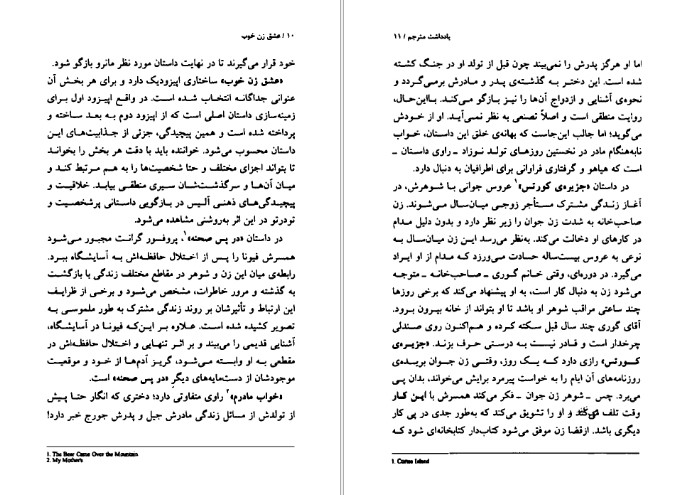 ۱۰ / عشق زن خوب
خود قرار می‌گیرند تا در نهایت داستان مورد نظر مانرو بازگو شود.
«عشق زن خوب» ساختاری اپیزودیک دارد و برای هر بخش آن
عنوانی جداگانه انتخاب شده است. در واقع اپیزود اول برای
زمینه‌سازی داستان اصلی است که از اپیزود دوم به بعد ساخته و
پرداخته شده است و همین پیچیدگی، جزئی از جذابیت‌های این
داستان محسوب می‌شود. خواننده باید با دقت هر بخش را بخواند
تا بتواند اجزای مختلف و حتا شخصیت‌ها را به هم مرتبط کند و
میان آن‌ها و سرگذشت‌شان سیری منطقی بیابد. خلاقیت و
پیچیدگی‌های ذهنی آلیس در بازگویی داستانی پرشخصیت و
تودرتو در این اثر به‌روشنی مشاهده می‌شود.
در داستان «در پس صحنه»۱، پروفسور گرانت مجبور می‌شود
همسرش فیونا را پس از اختلال حافظه‌اش به آسایشگاه ببرد.
رابطه‌ی میان این زن و شوهر در مقاطع مختلف زندگی با بازگشت
به گذشته و مرور خاطرات، مشخص می‌شود و برخی از ظرایف
این ارتباط و تأثیرشان بر روند زندگی مشترک به طور ملموسی به
تصویر کشیده شده است. علاوه بر این‌که فیونا در آسایشگاه،
آشنایی قدیمی را می‌بیند و بر اثر تنهایی و اختلال حافظه‌اش در
مقطعی به او وابسته می‌شود، گریز آدم‌ها از خود و موقعیت
موجودشان از دست‌مایه‌های دیگر «در پس صحنه» است.
«خواب مادرم»۲ راوی متفاوتی دارد؛ دختری که انگار حتا پیش
از تولدش از مسائل زندگی مادرش جیل و پدرش جورج خبر دارد!
1. The Bear Came Over the Mountain
2. My Mother's
یادداشت مترجم / ۱۱
اما او هرگز پدرش را نمی‌بیند چون قبل از تولد او در جنگ کشته
شده است. این دختر به گذشته‌ی پدر و مادرش برمی‌گردد و
نحوه‌ی آشنایی و ازدواج آن‌ها را نیز بازگو می‌کند. بااین‌حال،
روایت منطقی است و اصلاً تصنعی به نظر نمی‌آید. او از خودش
می‌گوید؛ اما جالب این‌جاست که بهانه‌ی خلق این داستان، خواب
نابه‌هنگام مادر در نخستین روزهای تولد نوزاد ـ راوی داستان ـ
است که هیاهو و گرفتاری فراوانی برای اطرافیان به دنبال دارد.
در داستان «جزیره‌ی کورتس»۱ عروس جوانی با شوهرش، در
آغاز زندگی مشترک مستأجر زوجی میان‌سال می‌شوند. زن
صاحب‌خانه به شدت زن جوان را زیر نظر دارد و بدون دلیل مدام
در کارهای او دخالت می‌کند. به‌نظر می‌رسد این زن میان‌سال به
نوعی به عروس بیست‌ساله حسادت می‌ورزد که مدام از او ایراد
می‌گیرد. در دوره‌ای، وقتی خانم گوری ـ صاحب‌خانه ـ متوجه
می‌شود زن به دنبال کار است، به او پیشنهاد می‌کند که برخی روزها
چند ساعتی مراقب شوهر او باشد تا او بتواند از خانه بیرون برود.
آقای گوری چند سال قبل سکته کرده و هم‌اکنون روی صندلی
چرخدار است و قادر نیست به درستی حرف بزند. «جزیره‌ی
کورتس» رازی دارد که یک روز، وقتی زن جوان بریده‌ی
روزنامه‌های آن ایام را به خواست پیرمرد برایش می‌خواند، بدان پی
می‌برد. چس ـ شوهر زن جوان ـ فکر می‌کند همسرش با این کار
وقت تلف می‌کند و او را تشویق می‌کند که به‌طور جدی در پی کار
دیگری باشد. ازقضا زن موفق می‌شود کتاب‌دار کتابخانه‌ای شود که
1. Cortes Island